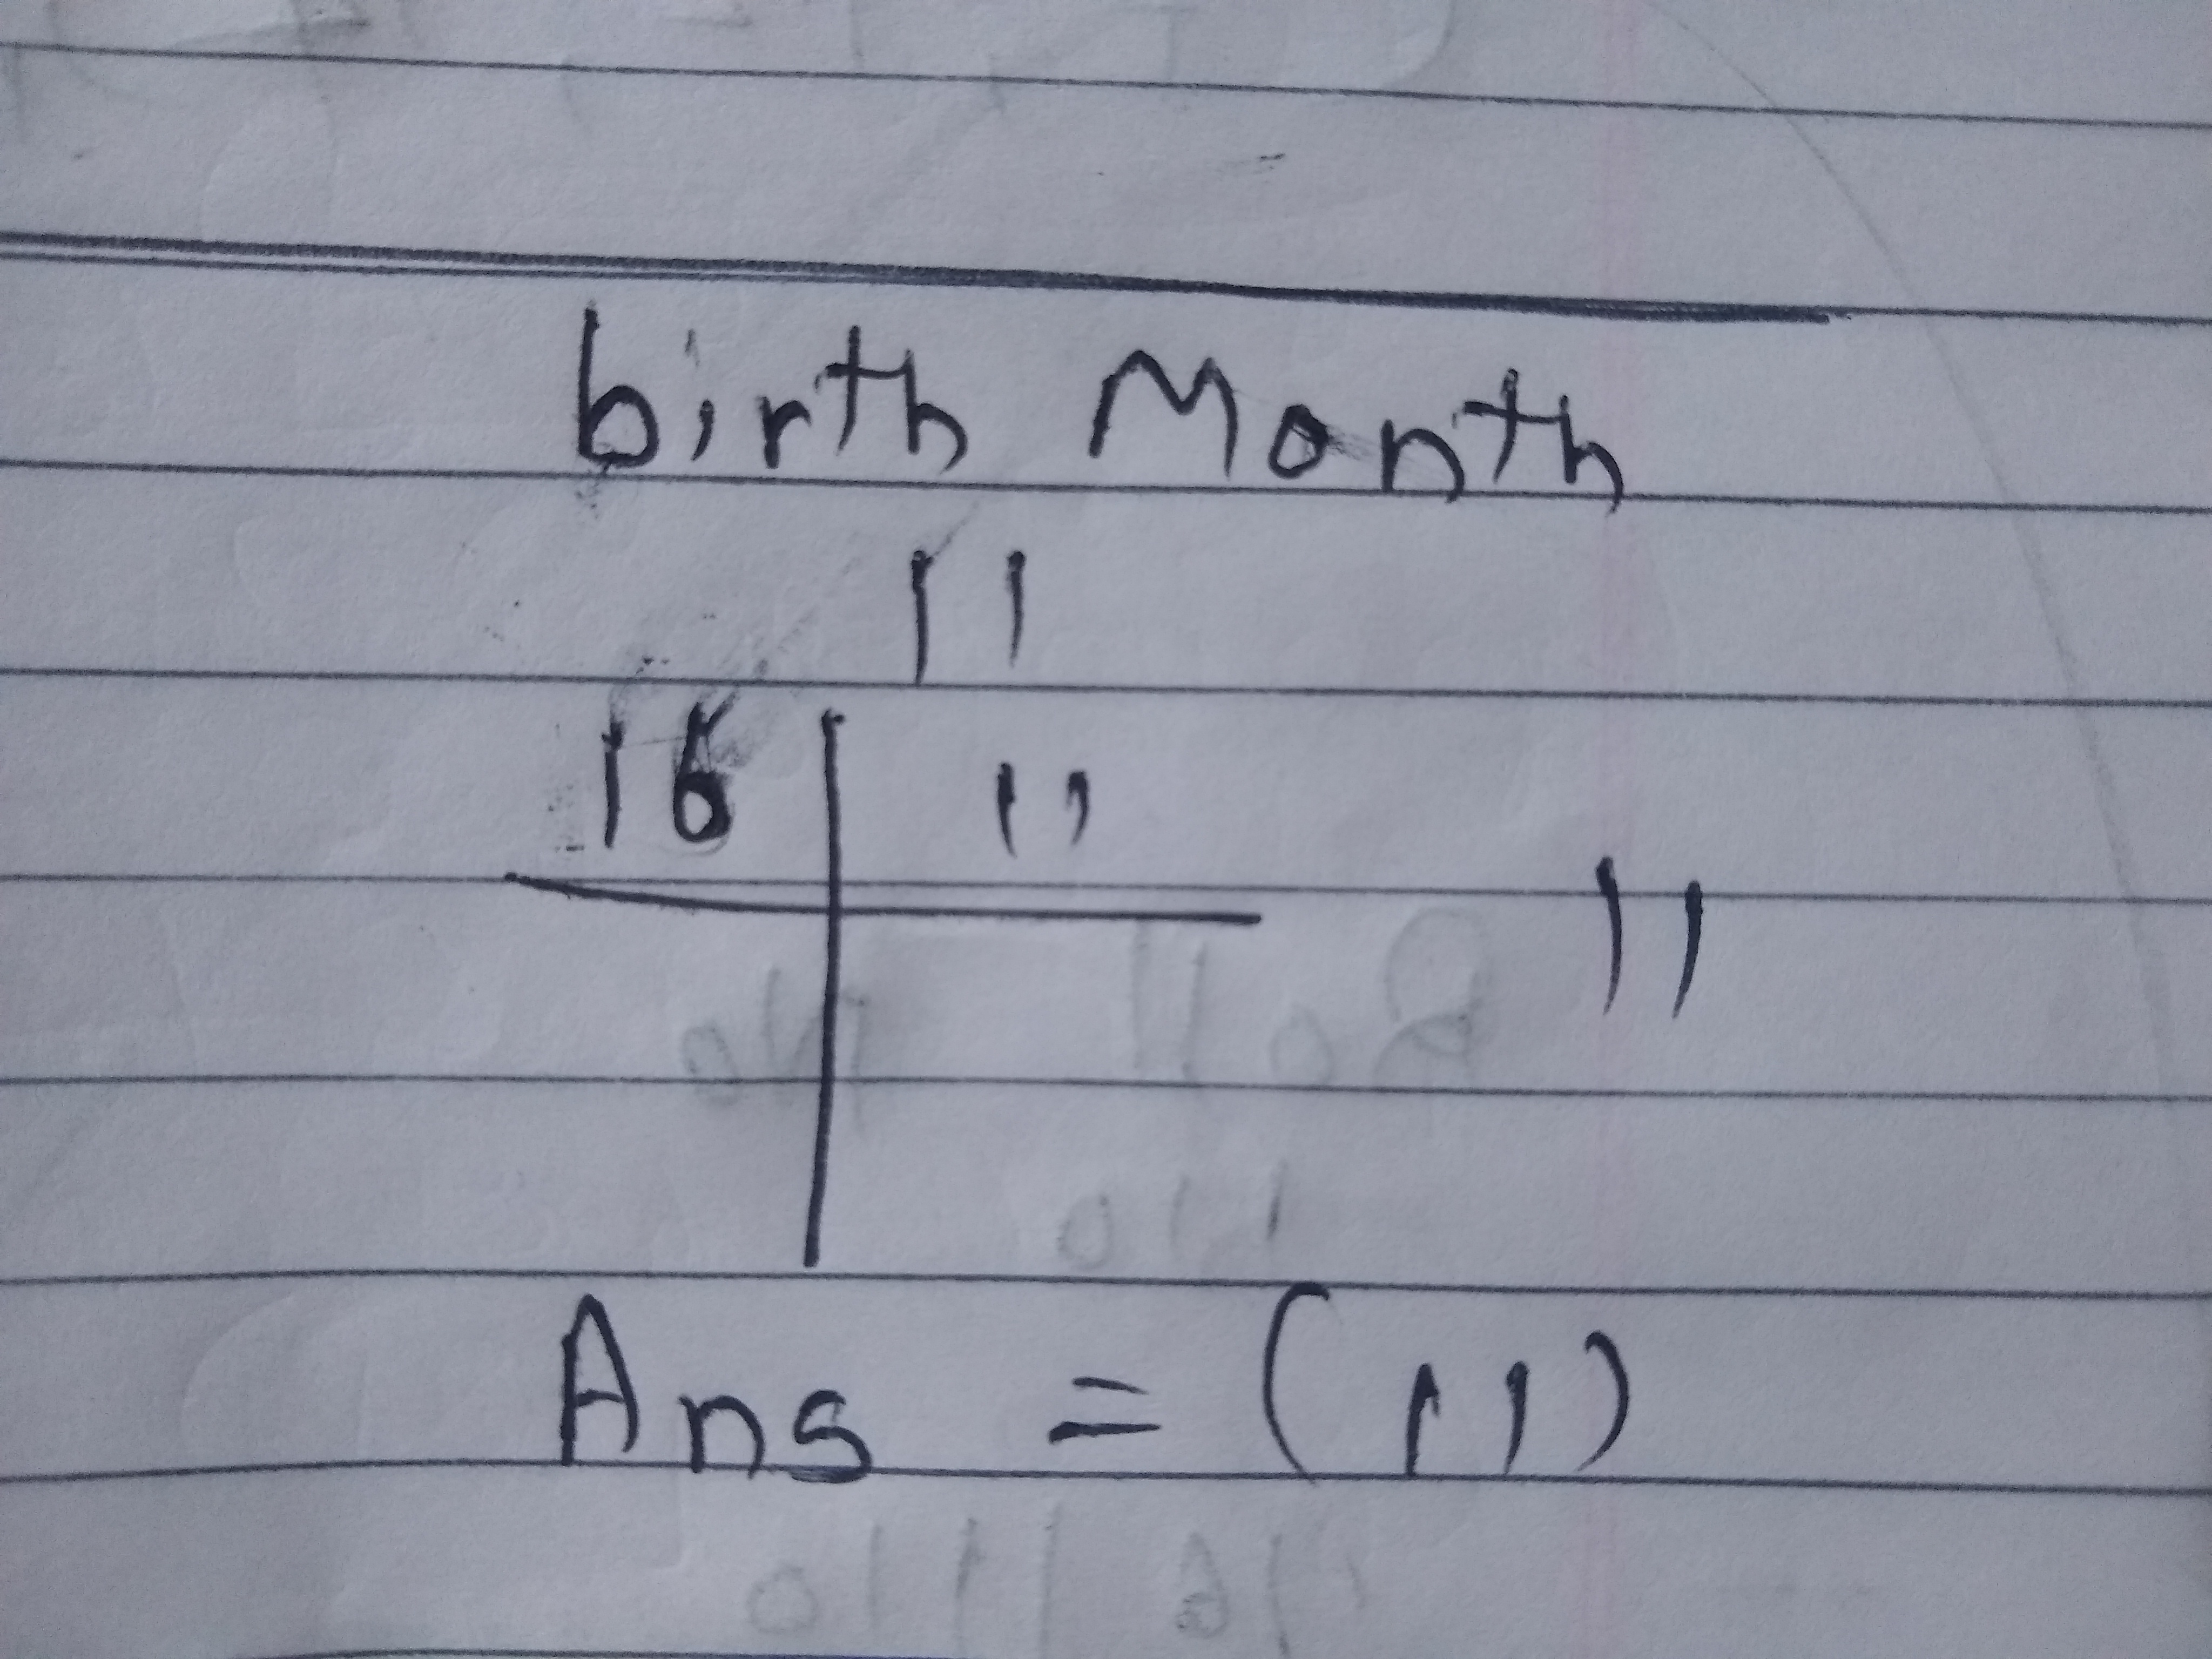 birth Month
11
16 11
11
Ans = (11)